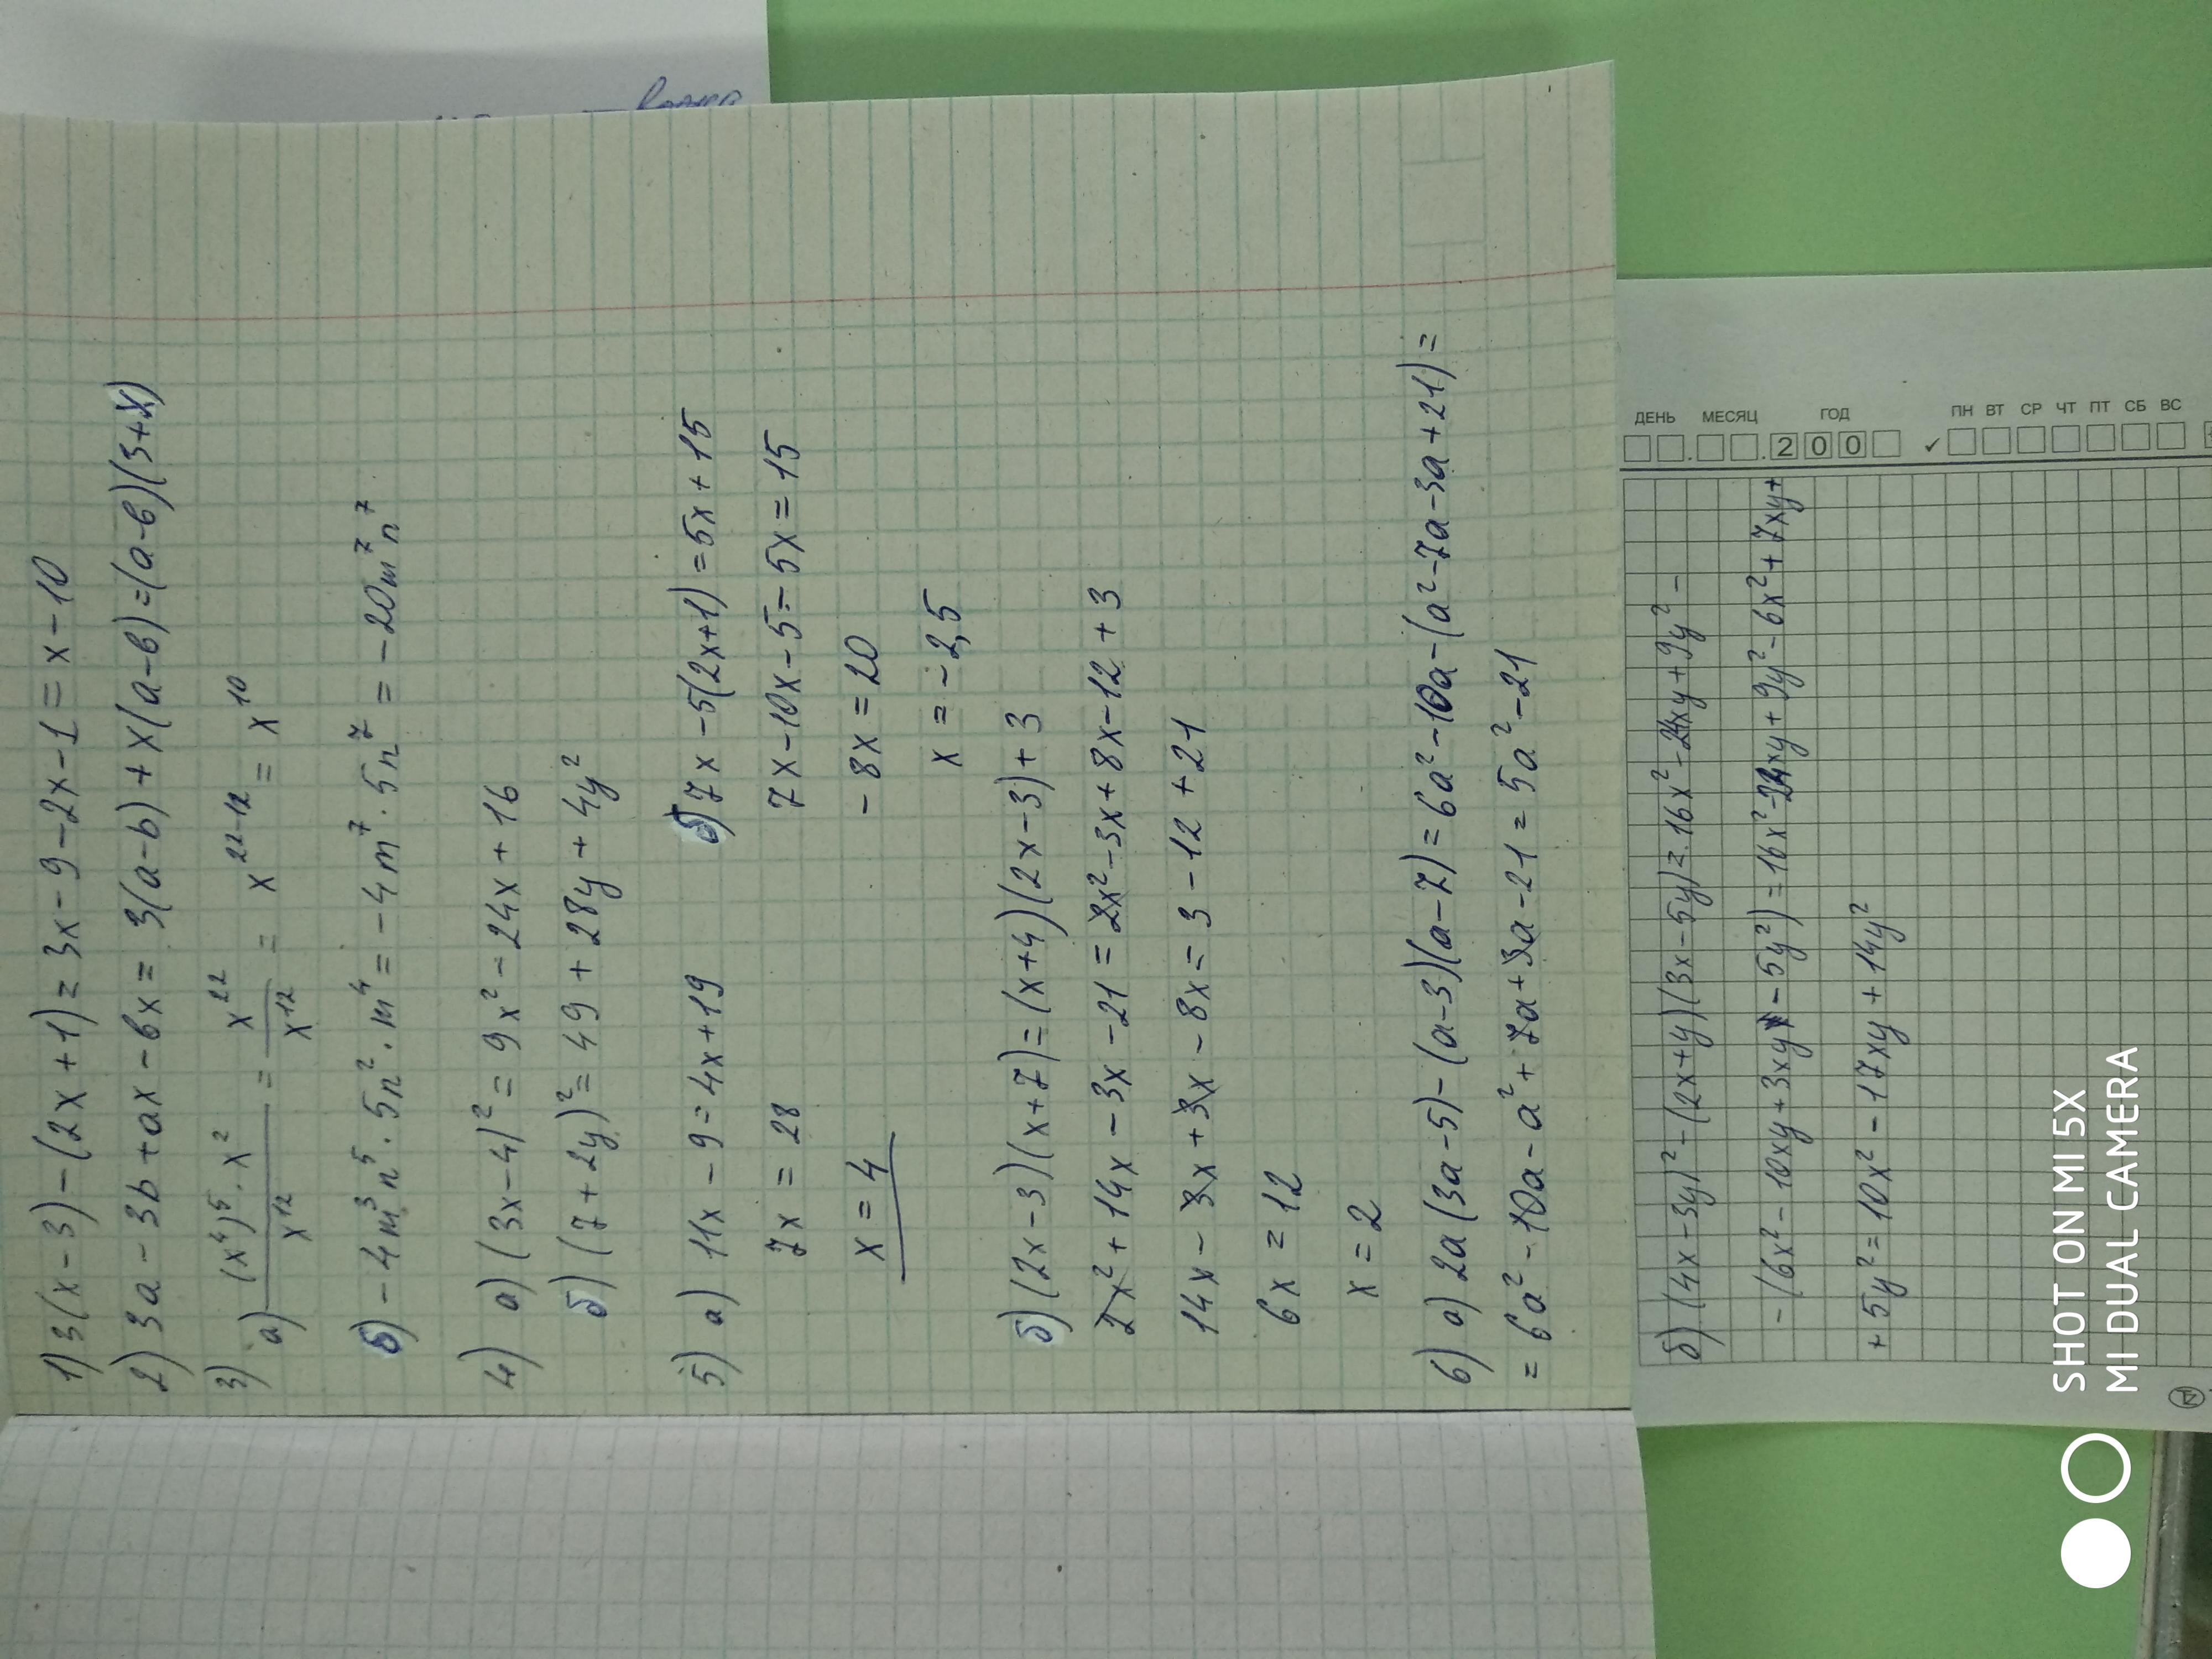 1) 3(x-3)-(2x+1)=3x-9-2x-1=x-10
2) 3a-3b+ax-bx=3(a-b)+x(a-b)=(a-b)(3+x)
3)
а) (x⁴)⁵·x²/x¹² = x²²/x¹² = x²²⁻¹² = x¹⁰
б) -4m³n⁵·5n²·m⁴=-4m⁷·5n⁷=-20m⁷n⁷
4) а) (3x-4)²=9x²-24x+16
б) (7+2y)²=49+28y+4y²
5) а) 11x-9=4x+19
7x=28
x=4
б) 7x-5(2x+1)=5x+15
7x-10x-5-5x=15
-8x=20
x=-2,5
б) (2x-3)(x+7)=(x+4)(2x-3)+3
2x²+14x-3x-21=2x²-3x+8x-12+3
14x-3x+3x-8x=3-12+21
6x=12
x=2
6) а) 2a(3a-5)-(a-3)(a-7)=6a²-10a-(a²-7a-3a+21)=
=6a²-10a-a²+7a+3a-21=5a²-21
б) (4x-3y)²-(2x+y)(3x-5y)=16x²-24xy+9y²-
-(6x²-10xy+3xy-5y²)=16x²-24xy+9y²-6x²+7xy+
+5y²=10x²-17xy+14y²
ДЕНЬ МЕСЯЦ ГОД
. . 2 0 0 ✓ ПН ВТ СР ЧТ ПТ СБ ВС
SHOT ON MI 5X
MI DUAL CAMERA